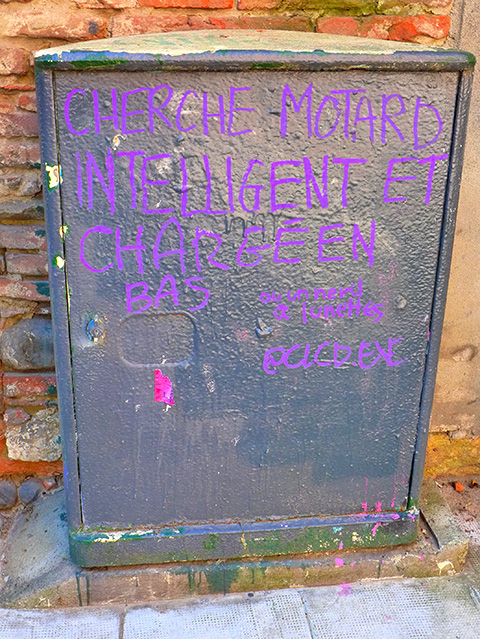 CHERCHE MOTARD
INTELLIGENT ET
CHARGÉ EN
BAS
ou un nerd
à lunettes
@CLCD.EXE